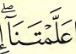 عَلَّمْتَنَآۖ